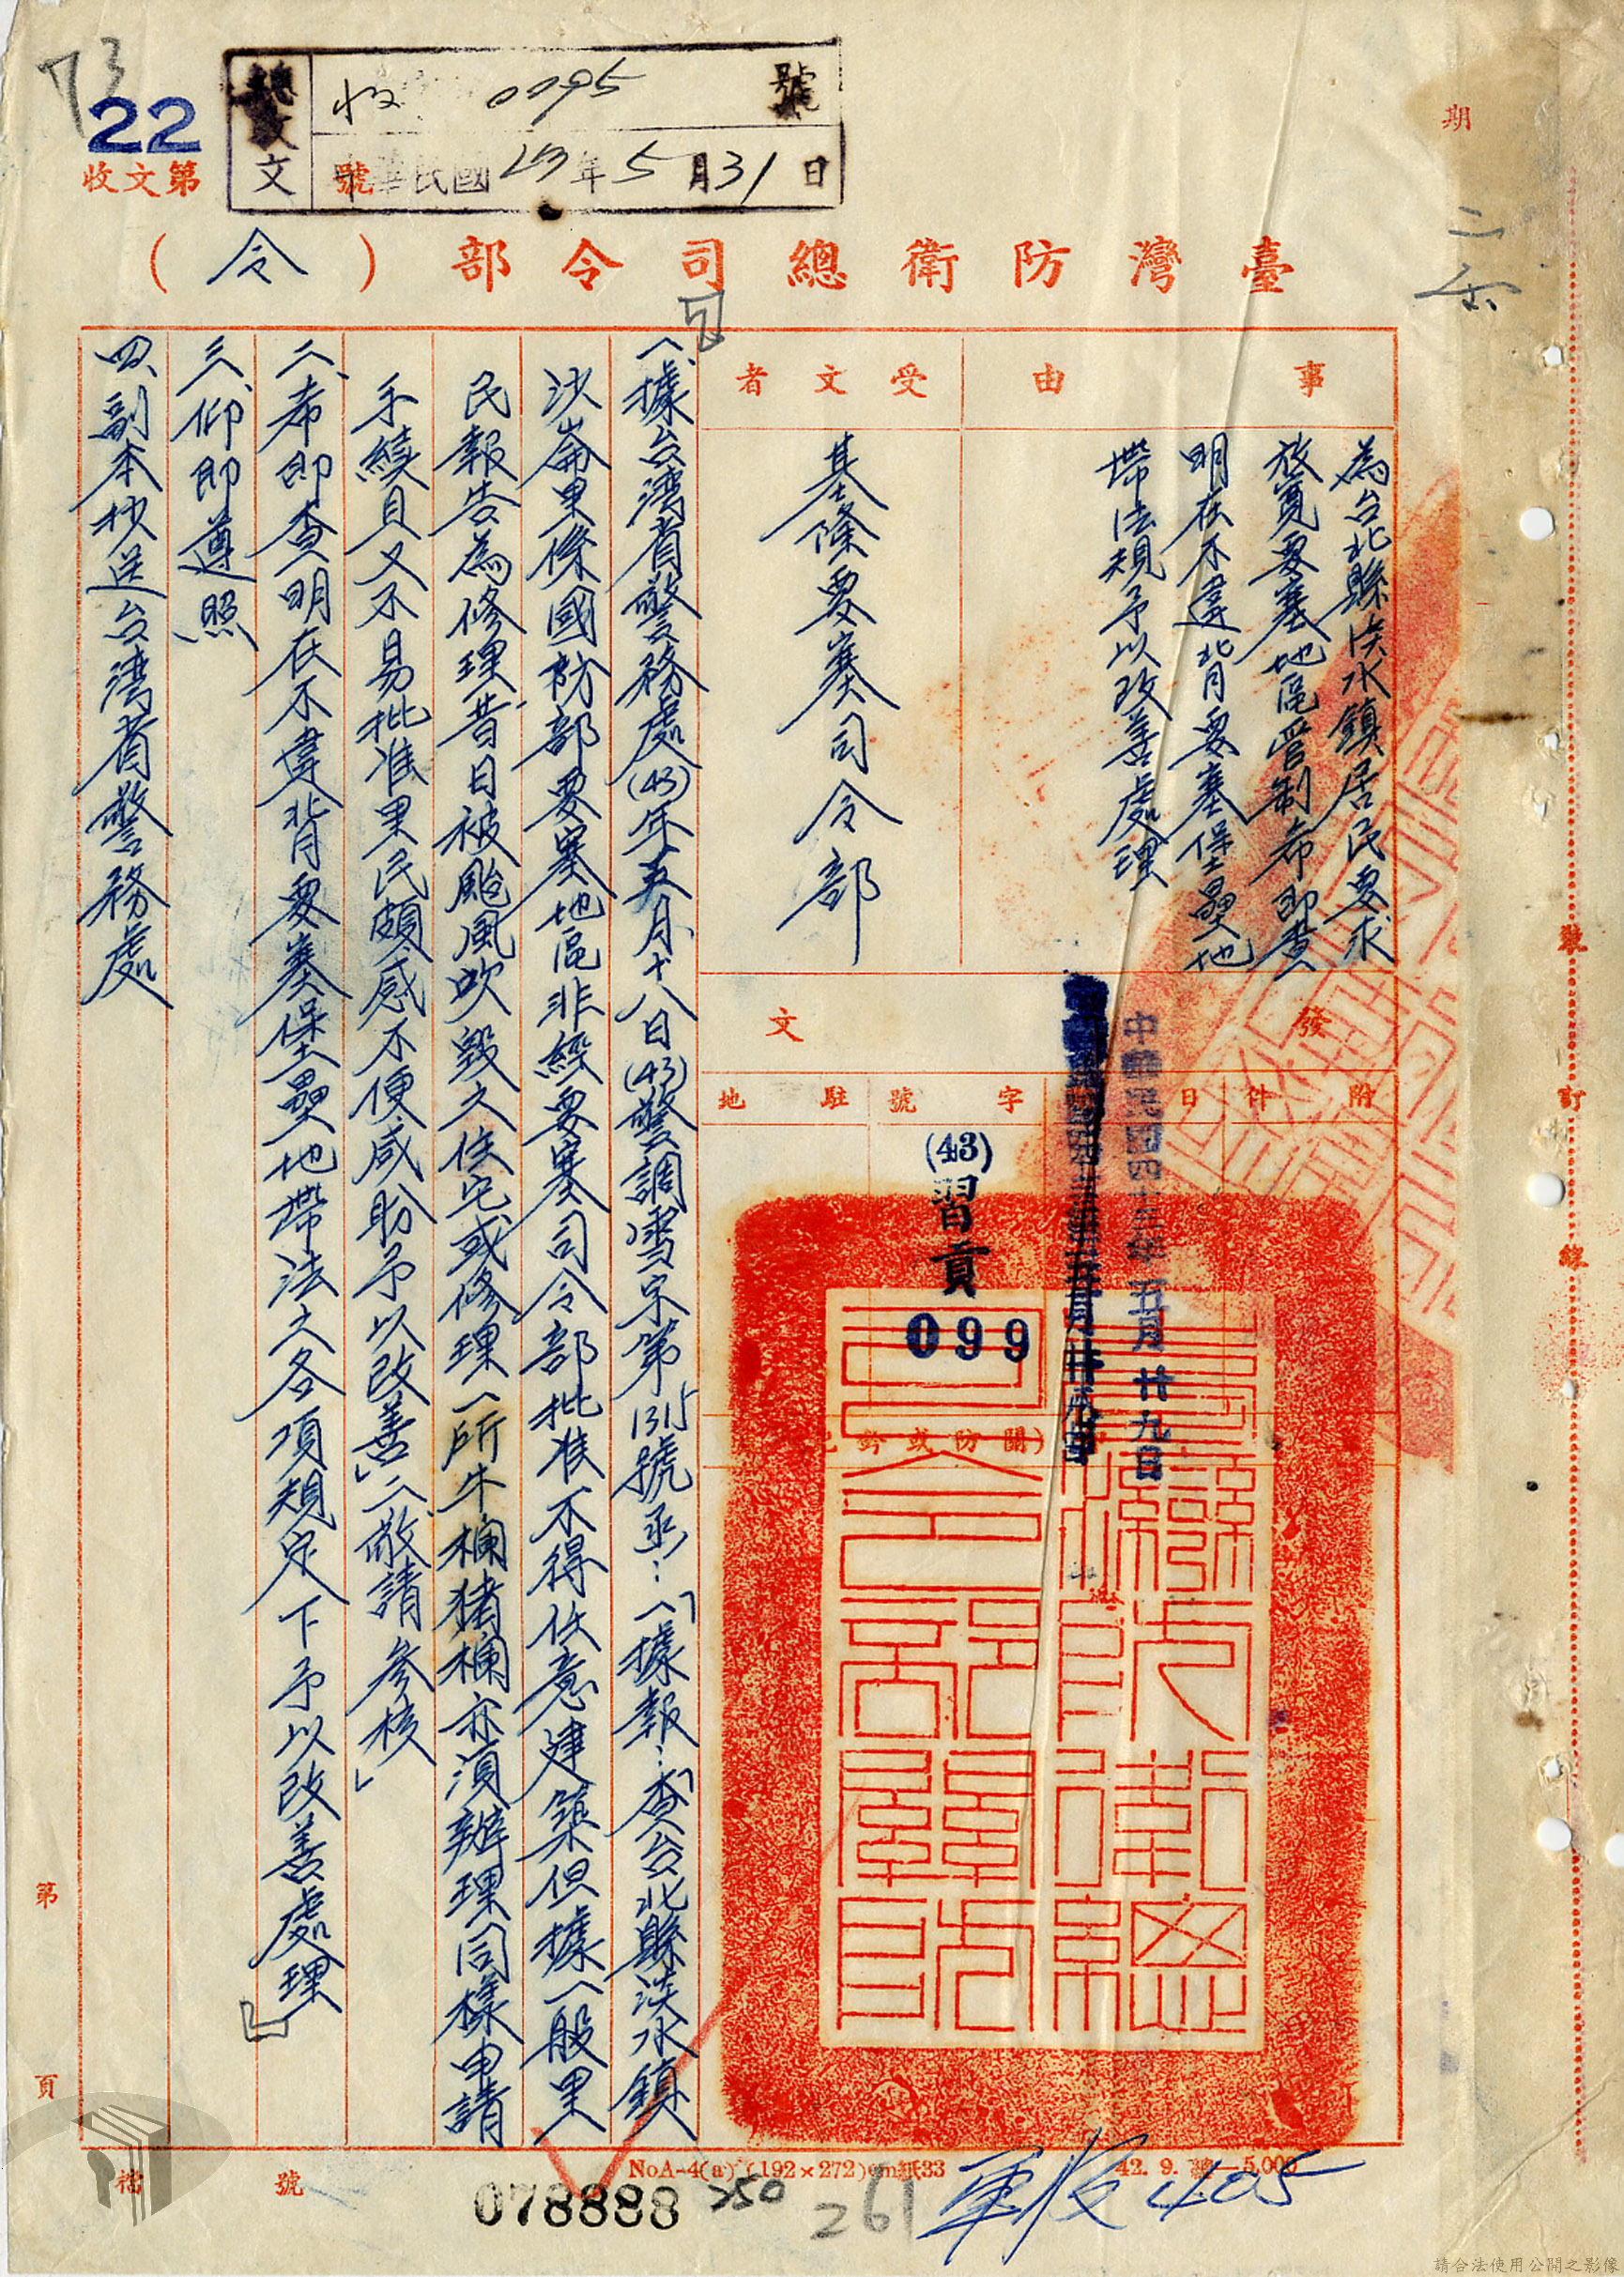 73
22
收文第
號
總收文
收 0795 號
中華民國43年5月31日
期
臺灣防衛總司令部（令）
事由
為台北縣淡水鎮居民要求
放寬要塞地區管制希即查
明在不違背要塞堡壘地
帶法規予以改善處理
受文者
基隆要塞司令部
發文
附件
日
字號
駐地
中華民國四十三年五月廿九日
(43)
習貢
099
一、據台湾省警務處(43)年五月十八日(43)警調雪字第1315號函：「一、據報：「查台北縣淡水鎮
沙崙里係國防部要塞地區非經要塞司令部批准不得任意建築但據一般里
民報告為修理昔日被颱風吹毀之住宅或修理一所牛欄猪欄亦須辦理同樣申請
手續且又不易批准里民頗感不便咸盼予以改善」二、敬請參核」
二、希即查明在不違背要塞堡壘地帶法之各項規定下予以改善處理
三、仰即遵照
四、副本抄送台湾省警務處
裝訂線
第頁
檔號
NoA-4(a) (192×272)cm紙33
42. 9. 5,000
078888
250
261
405
請合法使用公開之影像